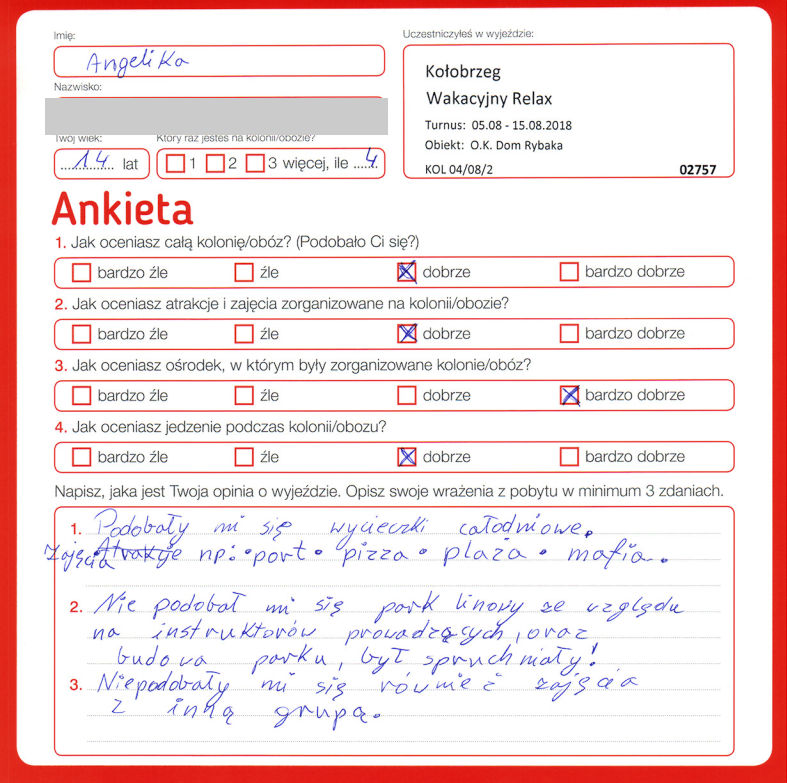 Imię:
Angelika
Nazwisko:
Twój wiek:
14 lat
Który raz jesteś na kolonii/obozie?
1 2 3 więcej, ile 4
Uczestniczyłeś w wyjeździe:
Kołobrzeg
Wakacyjny Relax
Turnus: 05.08 - 15.08.2018
Obiekt: O.K. Dom Rybaka
KOL 04/08/2 02757
Ankieta
1. Jak oceniasz całą kolonię/obóz? (Podobało Ci się?)
bardzo źle źle dobrze bardzo dobrze
2. Jak oceniasz atrakcje i zajęcia zorganizowane na kolonii/obozie?
bardzo źle źle dobrze bardzo dobrze
3. Jak oceniasz ośrodek, w którym były zorganizowane kolonie/obóz?
bardzo źle źle dobrze bardzo dobrze
4. Jak oceniasz jedzenie podczas kolonii/obozu?
bardzo źle źle dobrze bardzo dobrze
Napisz, jaka jest Twoja opinia o wyjeździe. Opisz swoje wrażenia z pobytu w minimum 3 zdaniach.
1. Podobały mi się wycieczki całodniowe.
Zajęcia np: •port• pizza • plaża • mafia.
2. Nie podobał mi się park linowy ze względu
na instruktorów prowadzących, oraz
budowa parku, był spruchniały!
3. Niepodobały mi się również zajęcia
z inną grupą.